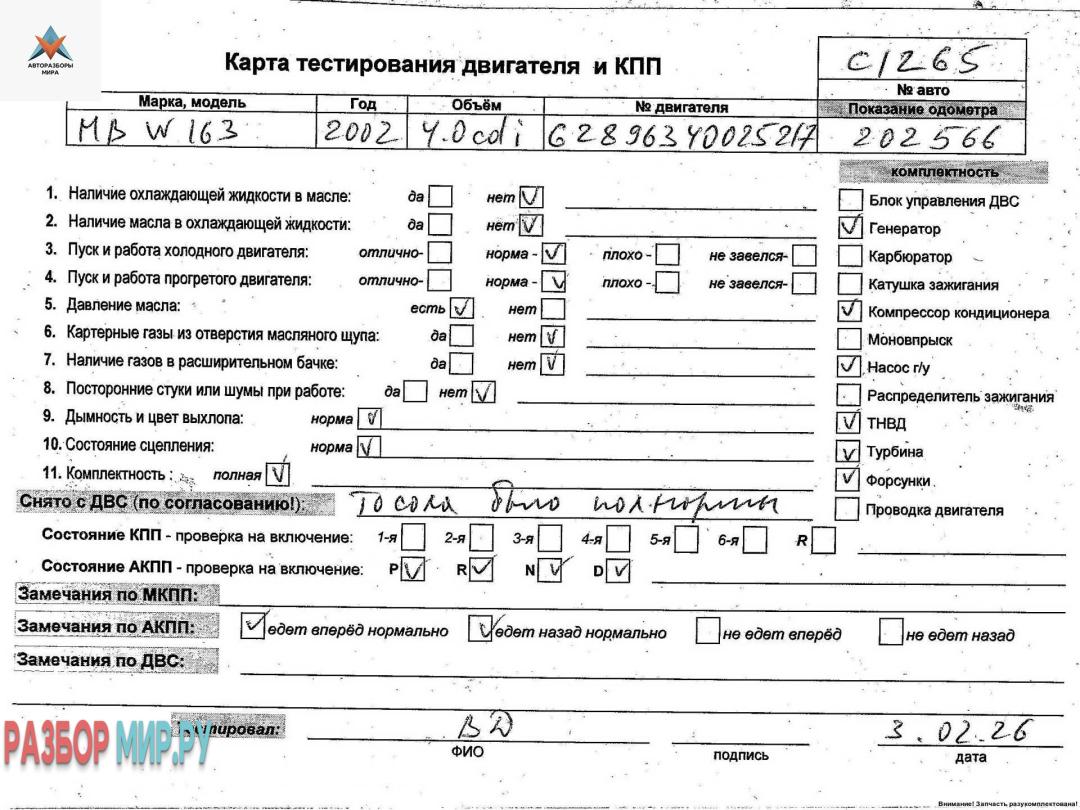 АВТОРАЗБОРЫ
МИРА
Карта тестирования двигателя и КПП
C1265
№ авто
Марка, модель Год Объём № двигателя Показание одометра
MB W 163 2002 4.0 cdi 62896340025217 202566
комплектность
1. Наличие охлаждающей жидкости в масле: да нет
2. Наличие масла в охлаждающей жидкости: да нет
3. Пуск и работа холодного двигателя: отлично- норма - плохо - не завелся-
4. Пуск и работа прогретого двигателя: отлично- норма - плохо - не завелся-
5. Давление масла: есть нет
6. Картерные газы из отверстия масляного щупа: да нет
7. Наличие газов в расширительном бачке: да нет
8. Посторонние стуки или шумы при работе: да нет
9. Дымность и цвет выхлопа: норма
10. Состояние сцепления: норма
11. Комплектность : полная
Блок управления ДВС
Генератор
Карбюратор
Катушка зажигания
Компрессор кондиционера
Моновпрыск
Насос г/у
Распределитель зажигания
ТНВД
Турбина
Форсунки
Проводка двигателя
Снято с ДВС (по согласованию!): Тосола было пол.нормы
Состояние КПП - проверка на включение: 1-я 2-я 3-я 4-я 5-я 6-я R
Состояние АКПП - проверка на включение: P R N D
Замечания по МКПП:
Замечания по АКПП: едет вперёд нормально едет назад нормально не едет вперёд не едет назад
Замечания по ДВС:
Тестировал: ВД 3.02.26
ФИО подпись дата
РАЗБОРМИР.РУ
Внимание! Запчасть разукомплектована!